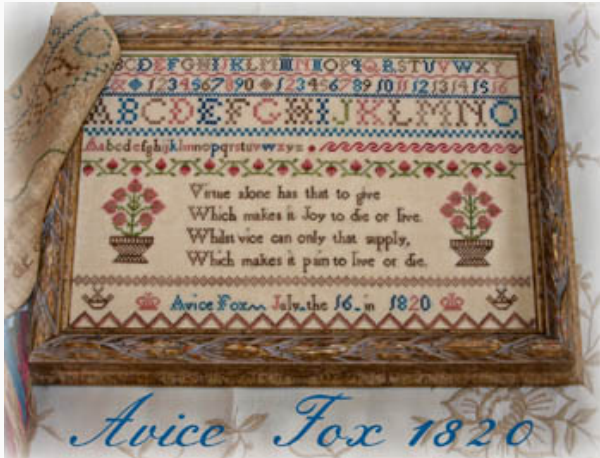 ABCDEFGHIJKLMNOPQRSTUVWXY
1234567890 12345678910111213141516
ABCDEFGHIJKLMNO
Aabcdefghijklmnopqrstuvwxyz
Virtue alone has that to give
Which makes it Joy to die or live.
Whilst vice can only that supply,
Which makes it pain to live or die.
Avice Fox July the 16 in 1820
Avice Fox 1820